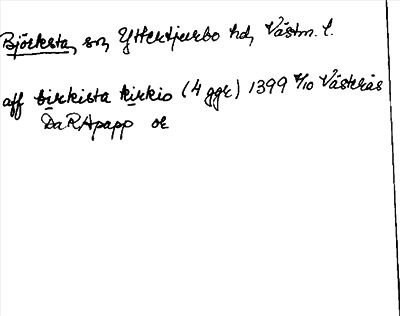 Björksta, sn, Yttertjurbo hd, Västm. l.
aff birkista kirkio (4 ggr) 1399 4/10 Västerås
DaRApapp or